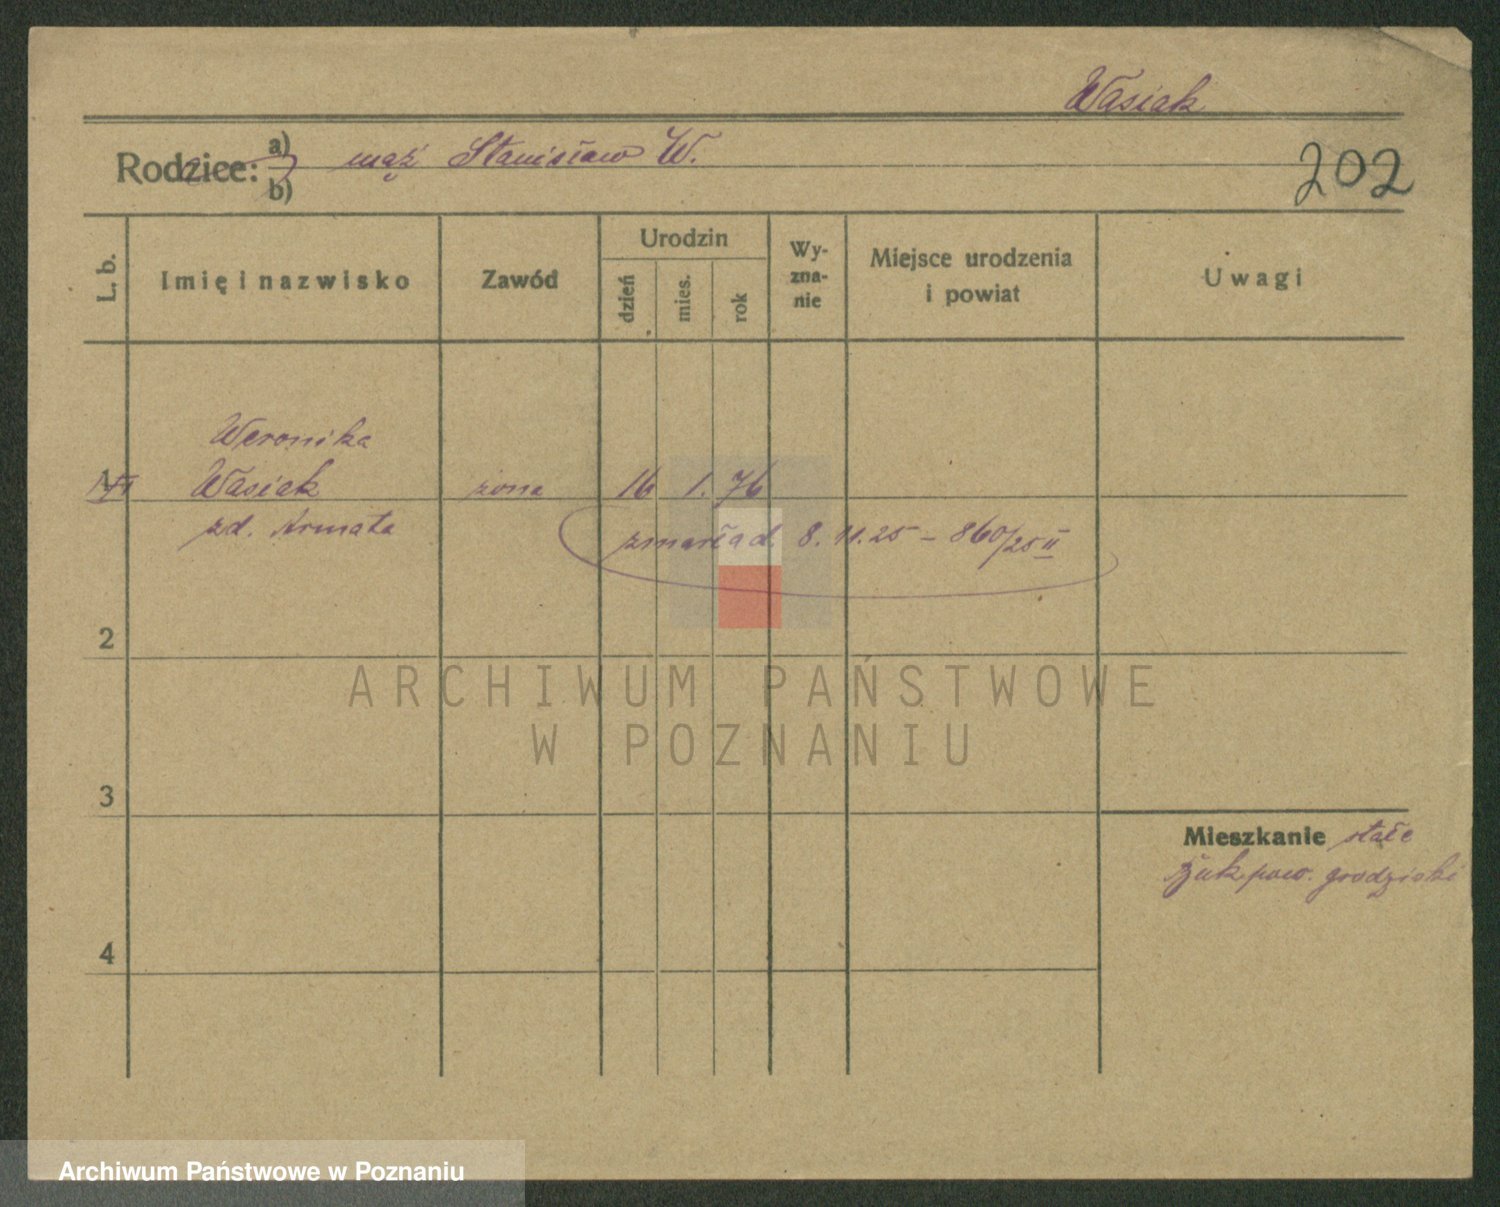 Wasiak
Rodzice: a) mąż Stanisław W.
b)
202
L. b.
Imię i nazwisko
Zawód
Urodzin
dzień
mies.
rok
Wy-
zna-
nie
Miejsce urodzenia
i powiat
Uwagi
Weronika
1 Wasiak żona 16 1. 76
zd. Armata
zmarła d. 8. 11. 25 – 860/25 II
2
3
4
Mieszkanie stałe
pow. grodziski
ARCHIWUM PAŃSTWOWE
W POZNANIU
Archiwum Państwowe w Poznaniu